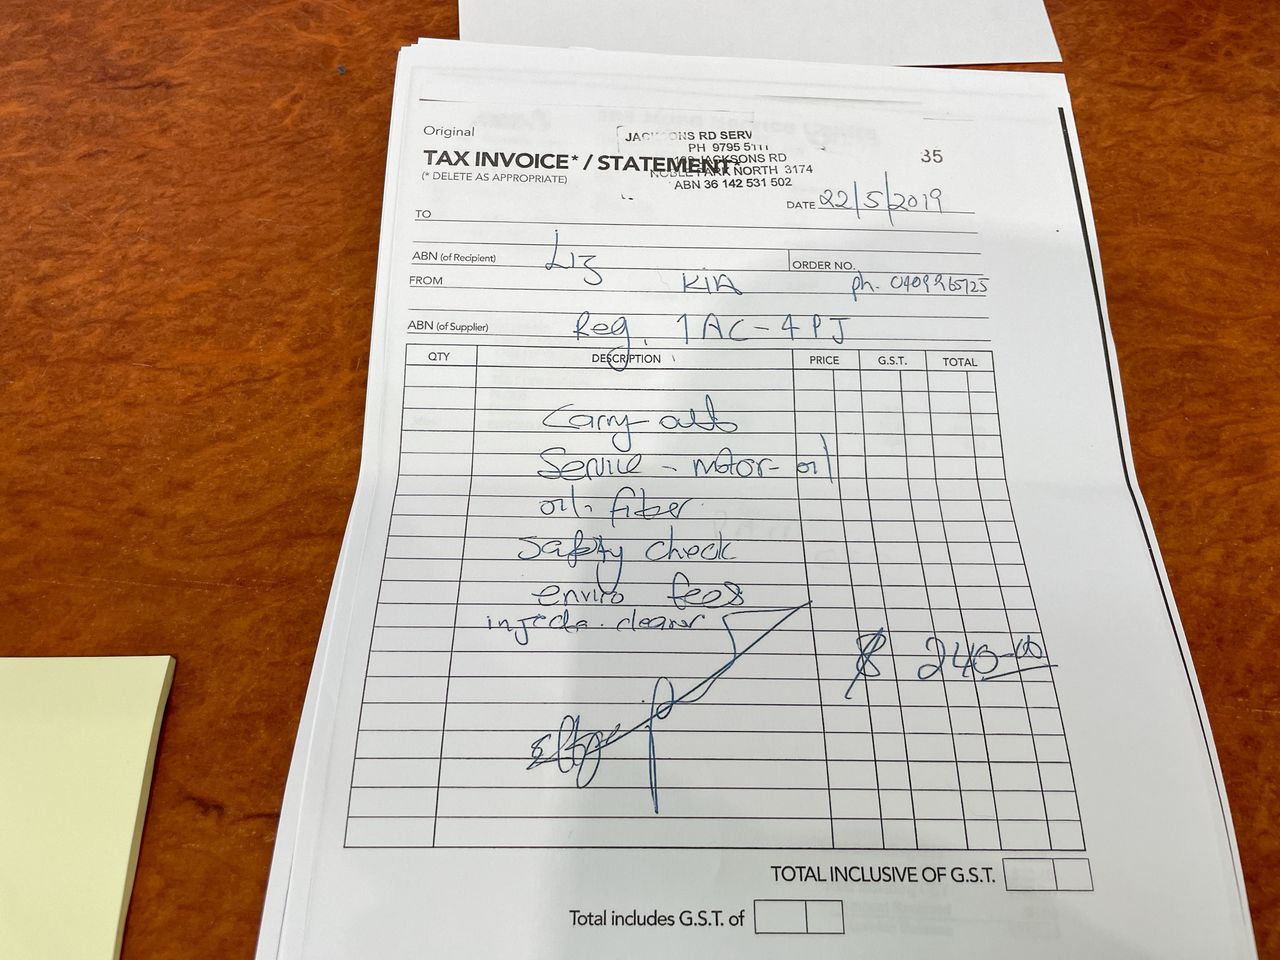 Original
JACKSONS RD SERV
PH 9795 5111
35
TAX INVOICE* / STATEMENT*
JACKSONS RD
(* DELETE AS APPROPRIATE)
NOBLE PARK NORTH 3174
ABN 36 142 531 502
DATE 22/5/2019
TO
ABN (of Recipient) Liz ORDER NO.
FROM KIA ph. 0409965125
ABN (of Supplier) Reg. 1AC-4PJ
QTY DESCRIPTION PRICE G.S.T. TOTAL
Carry out
Service - motor-oil
oil. filter
safety check
enviro fees
injector cleaner
$ 240-00
TOTAL INCLUSIVE OF G.S.T.
Total includes G.S.T. of